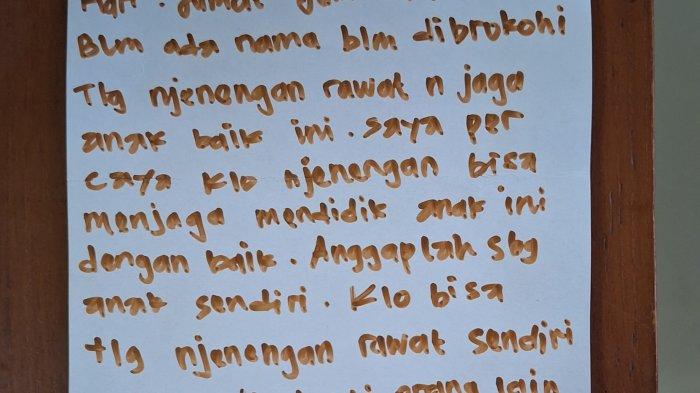 Hari : Jumat
Blm ada nama blm dibrokohi
Tlg njenengan rawat n jaga
anak baik ini. saya per
caya klo njenengan bisa
menjaga mendidik anak ini
dengan baik. Anggaplah sbg
anak sendiri. Klo bisa
tlg njenengan rawat sendiri
orang lain